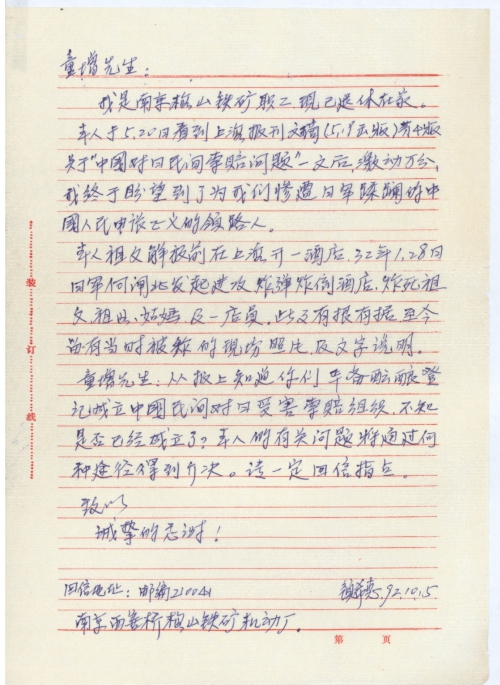 童增先生：
我是南京梅山铁矿职工现已退休在家。
本人于5.20日看到上海报刊文摘(5.19出版)第4版
关于“中国对日民间索赔问题”一文后，激动万分，
我终于盼望到了为我们惨遭日军蹂躏的中
國人民申张正义的领路人。
本人祖父解放前在上海开一酒店，32年1.28日
日军向闸北发起进攻炸弹炸倒酒店，炸死祖
父、祖母、姑妈及一店员。此事有报有据至今
留有当时被炸的现场照片及文字说明。
童增先生：从报上知道你们准备酝酿登
记成立中國民间对日受害索赔组织，不知
是否已经成立了？本人的有关问题将通过何
种途径得到解决。请一定回信指点。
致以
诚挚的感谢！
回信地址：邮编210041
92.10.15.
南京西善桥梅山铁矿机动厂。
装订线
第 页